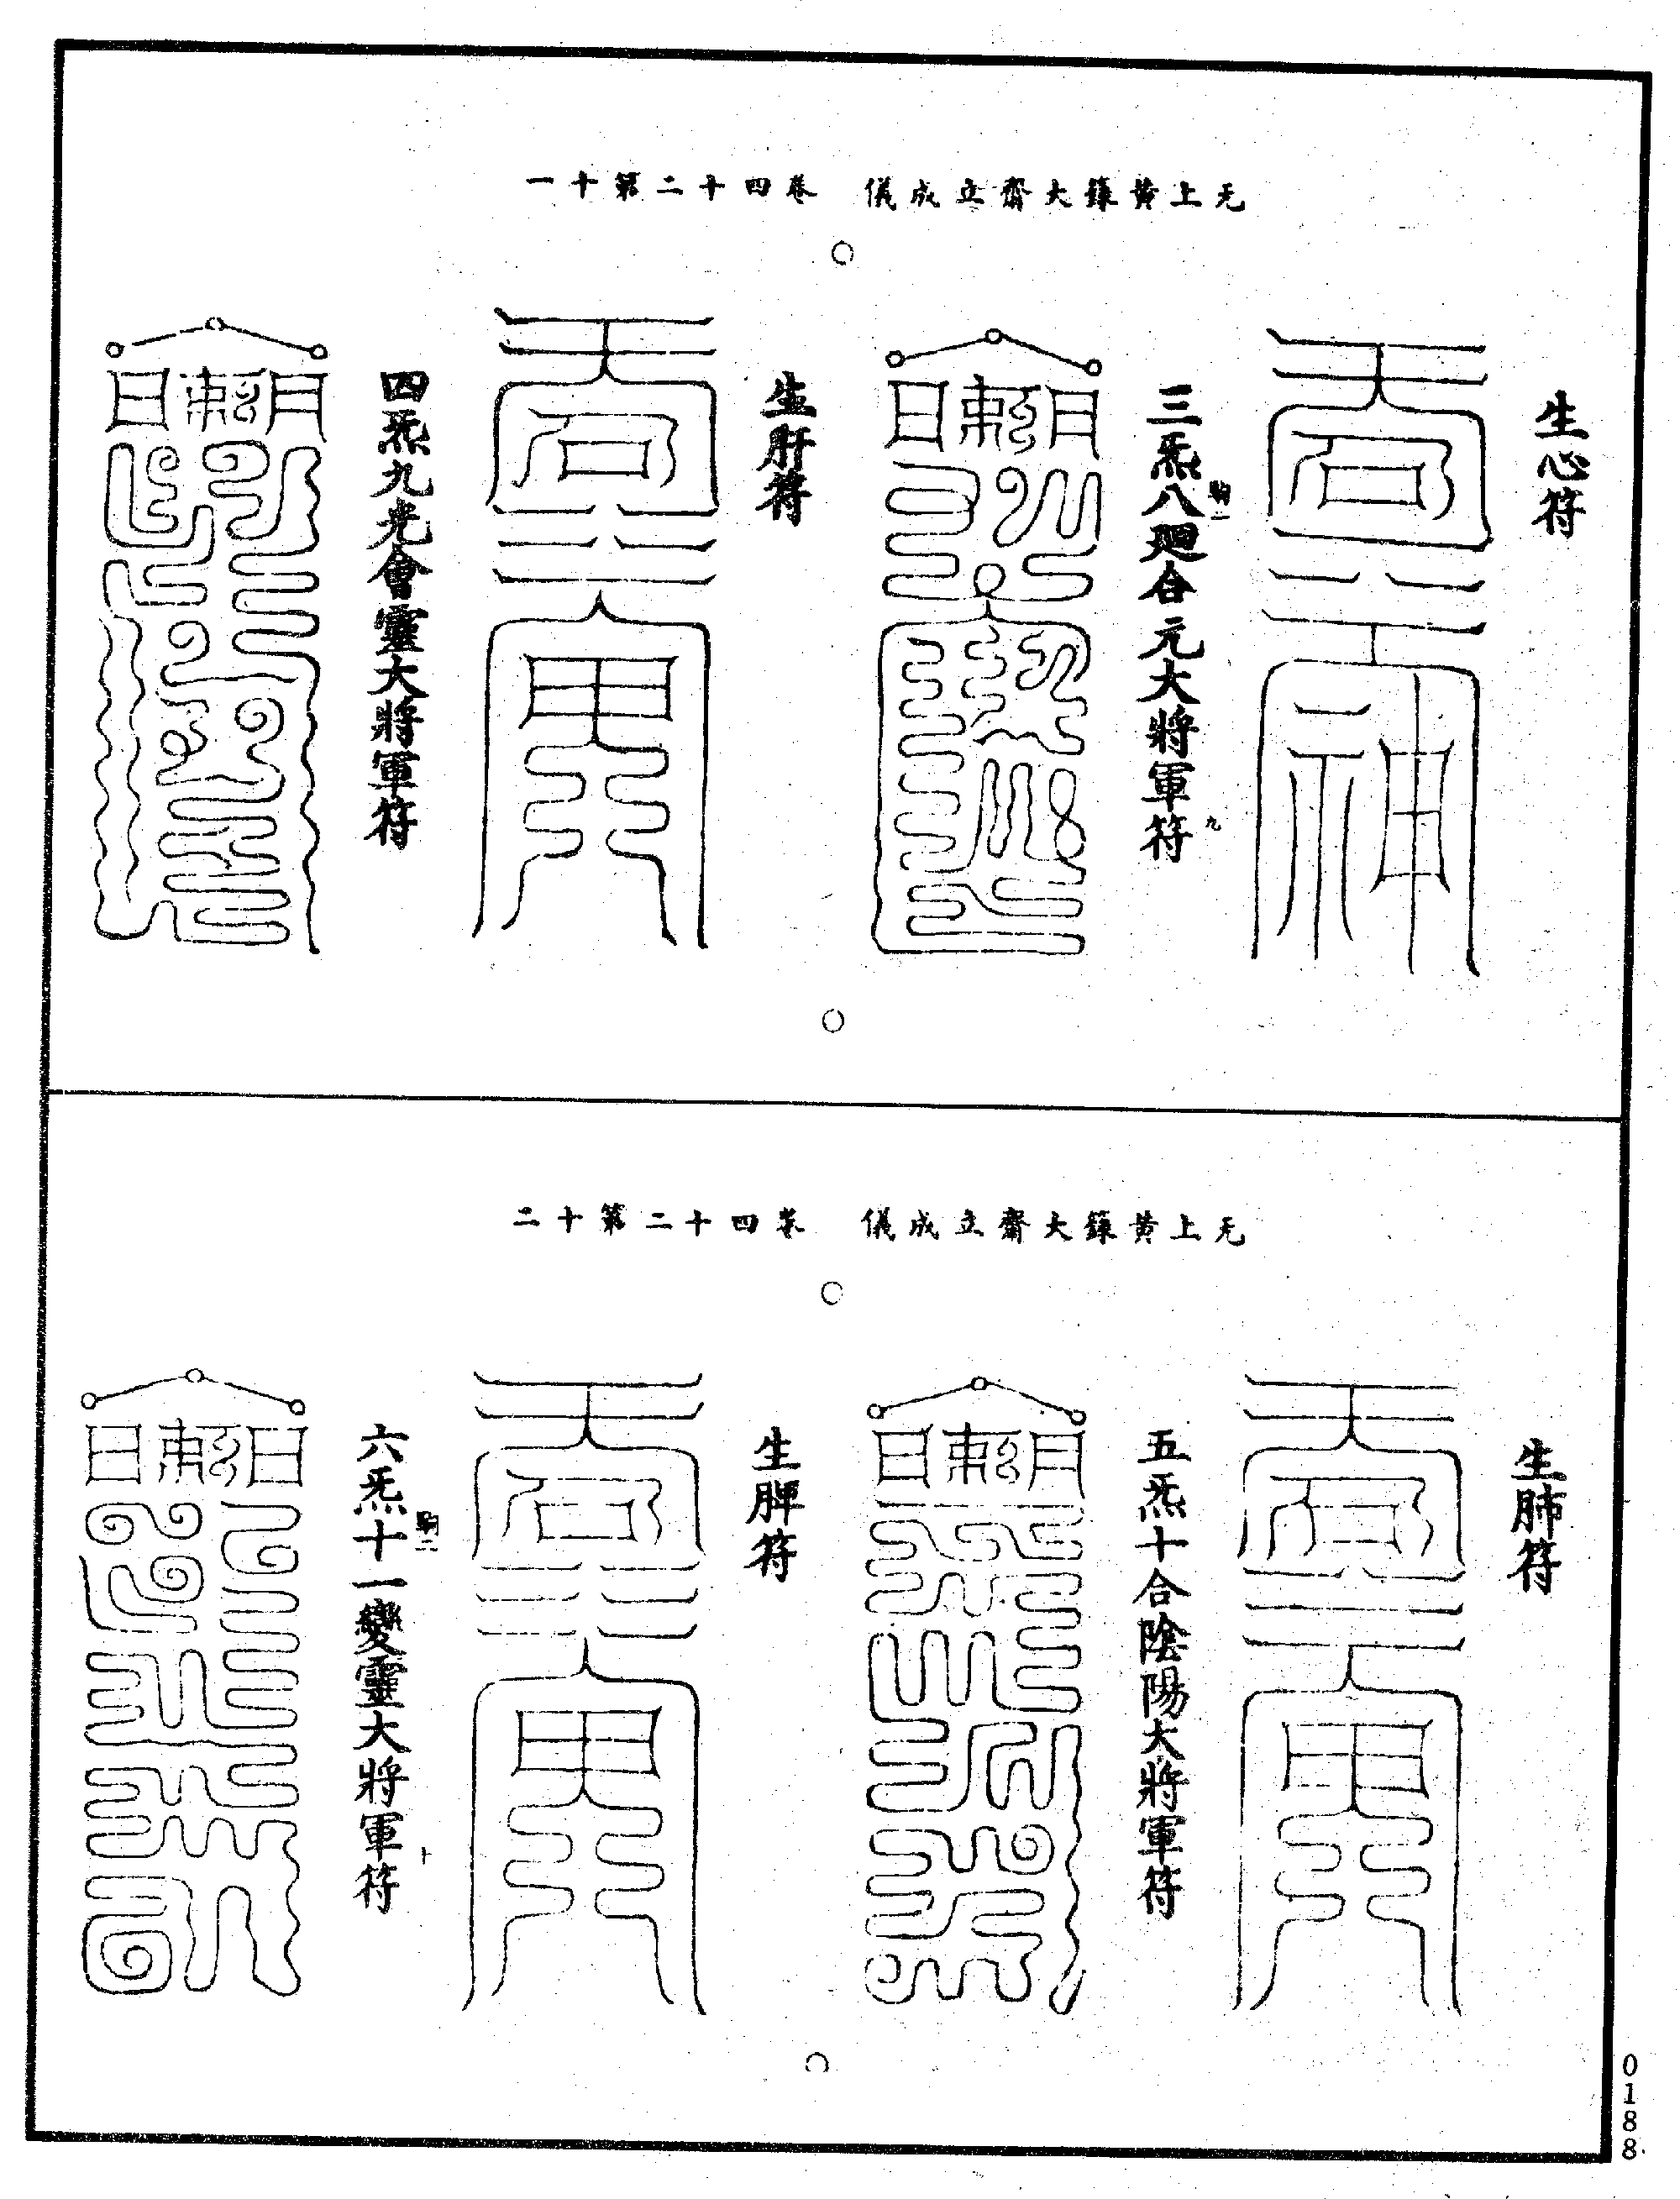 无上黃籙大齋立成儀　卷四十二第十一
生心符
三炁八廻合元大將軍符
駒一
九
生肝符
四炁九光會靈大將軍符
无上黃籙大齋立成儀　卷四十二第十二
生肺符
五炁十合陰陽大將軍符
生脾符
六炁十一變靈大將軍符
駒二
十
0188